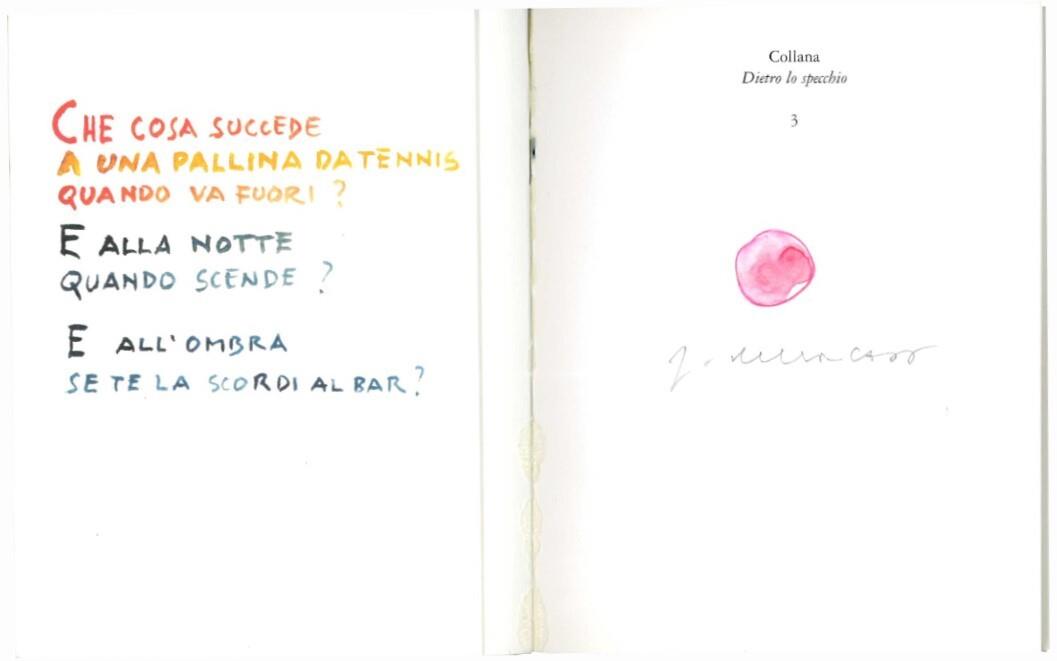 CHE COSA SUCCEDE
A UNA PALLINA DA TENNIS
QUANDO VA FUORI ?
E ALLA NOTTE
QUANDO SCENDE ?
E ALL'OMBRA
SE TE LA SCORDI AL BAR ?
Collana
Dietro lo specchio
3